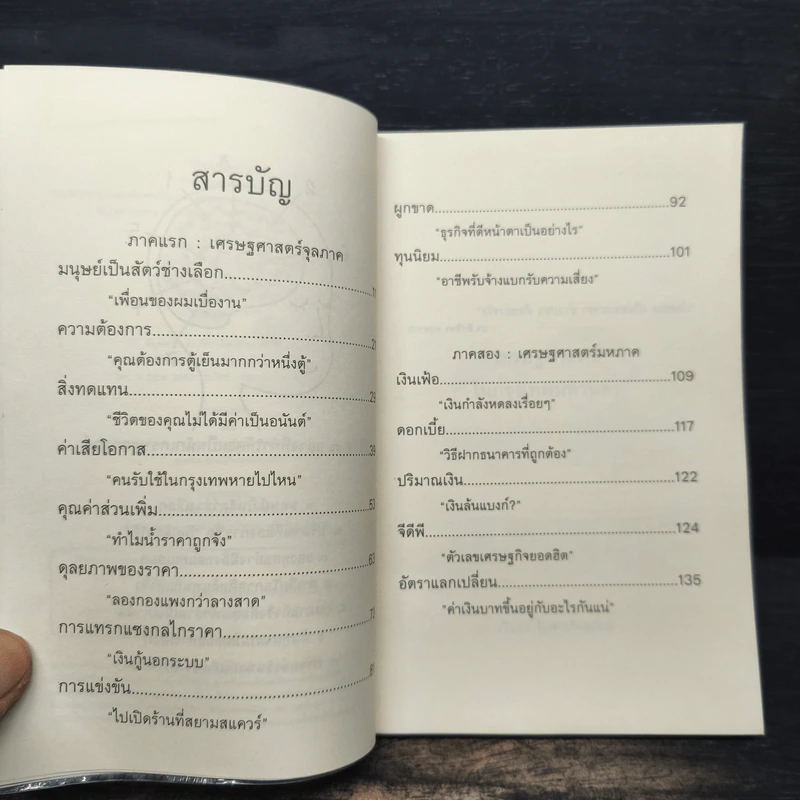 สารบัญ
ภาคแรก : เศรษฐศาสตร์จุลภาค
มนุษย์เป็นสัตว์ช่างเลือก
"เพื่อนของผมเบื่องาน"
ความต้องการ
"คุณต้องการตู้เย็นมากกว่าหนึ่งตู้"
สิ่งทดแทน 29
"ชีวิตของคุณไม่ได้มีค่าเป็นอนันต์"
ค่าเสียโอกาส 39
"คนรับใช้ในกรุงเทพหายไปไหน"
คุณค่าส่วนเพิ่ม 53
"ทำไมน้ำราคาถูกจัง"
ดุลยภาพของราคา 63
"ลองกองแพงกว่าลางสาด"
การแทรกแซงกลไกราคา
"เงินกู้นอกระบบ"
การแข่งขัน
"ไปเปิดร้านที่สยามสแควร์"
ผูกขาด 92
"ธุรกิจที่ดีหน้าตาเป็นอย่างไร"
ทุนนิยม 101
"อาชีพรับจ้างแบกรับความเสี่ยง"
ภาคสอง : เศรษฐศาสตร์มหภาค
เงินเฟ้อ 109
"เงินกำลังหดลงเรื่อยๆ"
ดอกเบี้ย 117
"วิธีฝากธนาคารที่ถูกต้อง"
ปริมาณเงิน 122
"เงินล้นแบงก์?"
จีดีพี 124
"ตัวเลขเศรษฐกิจยอดฮิต"
อัตราแลกเปลี่ยน 135
"ค่าเงินบาทขึ้นอยู่กับอะไรกันแน่"